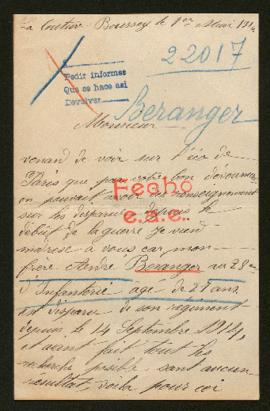 La Couture Boussey le 1er Mai 191
22017
Pedir informes
Que se hace asi
Devolver
Beranger
Monsieur
venant de voir sur l'éco de
Paris que par votre bon dévouement
on pouvait avoir des renseignement
sur les disparus depuis le
début de la guerre je vien
m'adresé à vous car mon
frère André Beranger au 28e
d'Infanterie agé de 27 ans
est disparu de son régiment
depuis le 14 Septembre 1914,
et ayant fait tout les
recherche posible sans aucun
resultat, voila pour ce
Fecho
e.a.e.